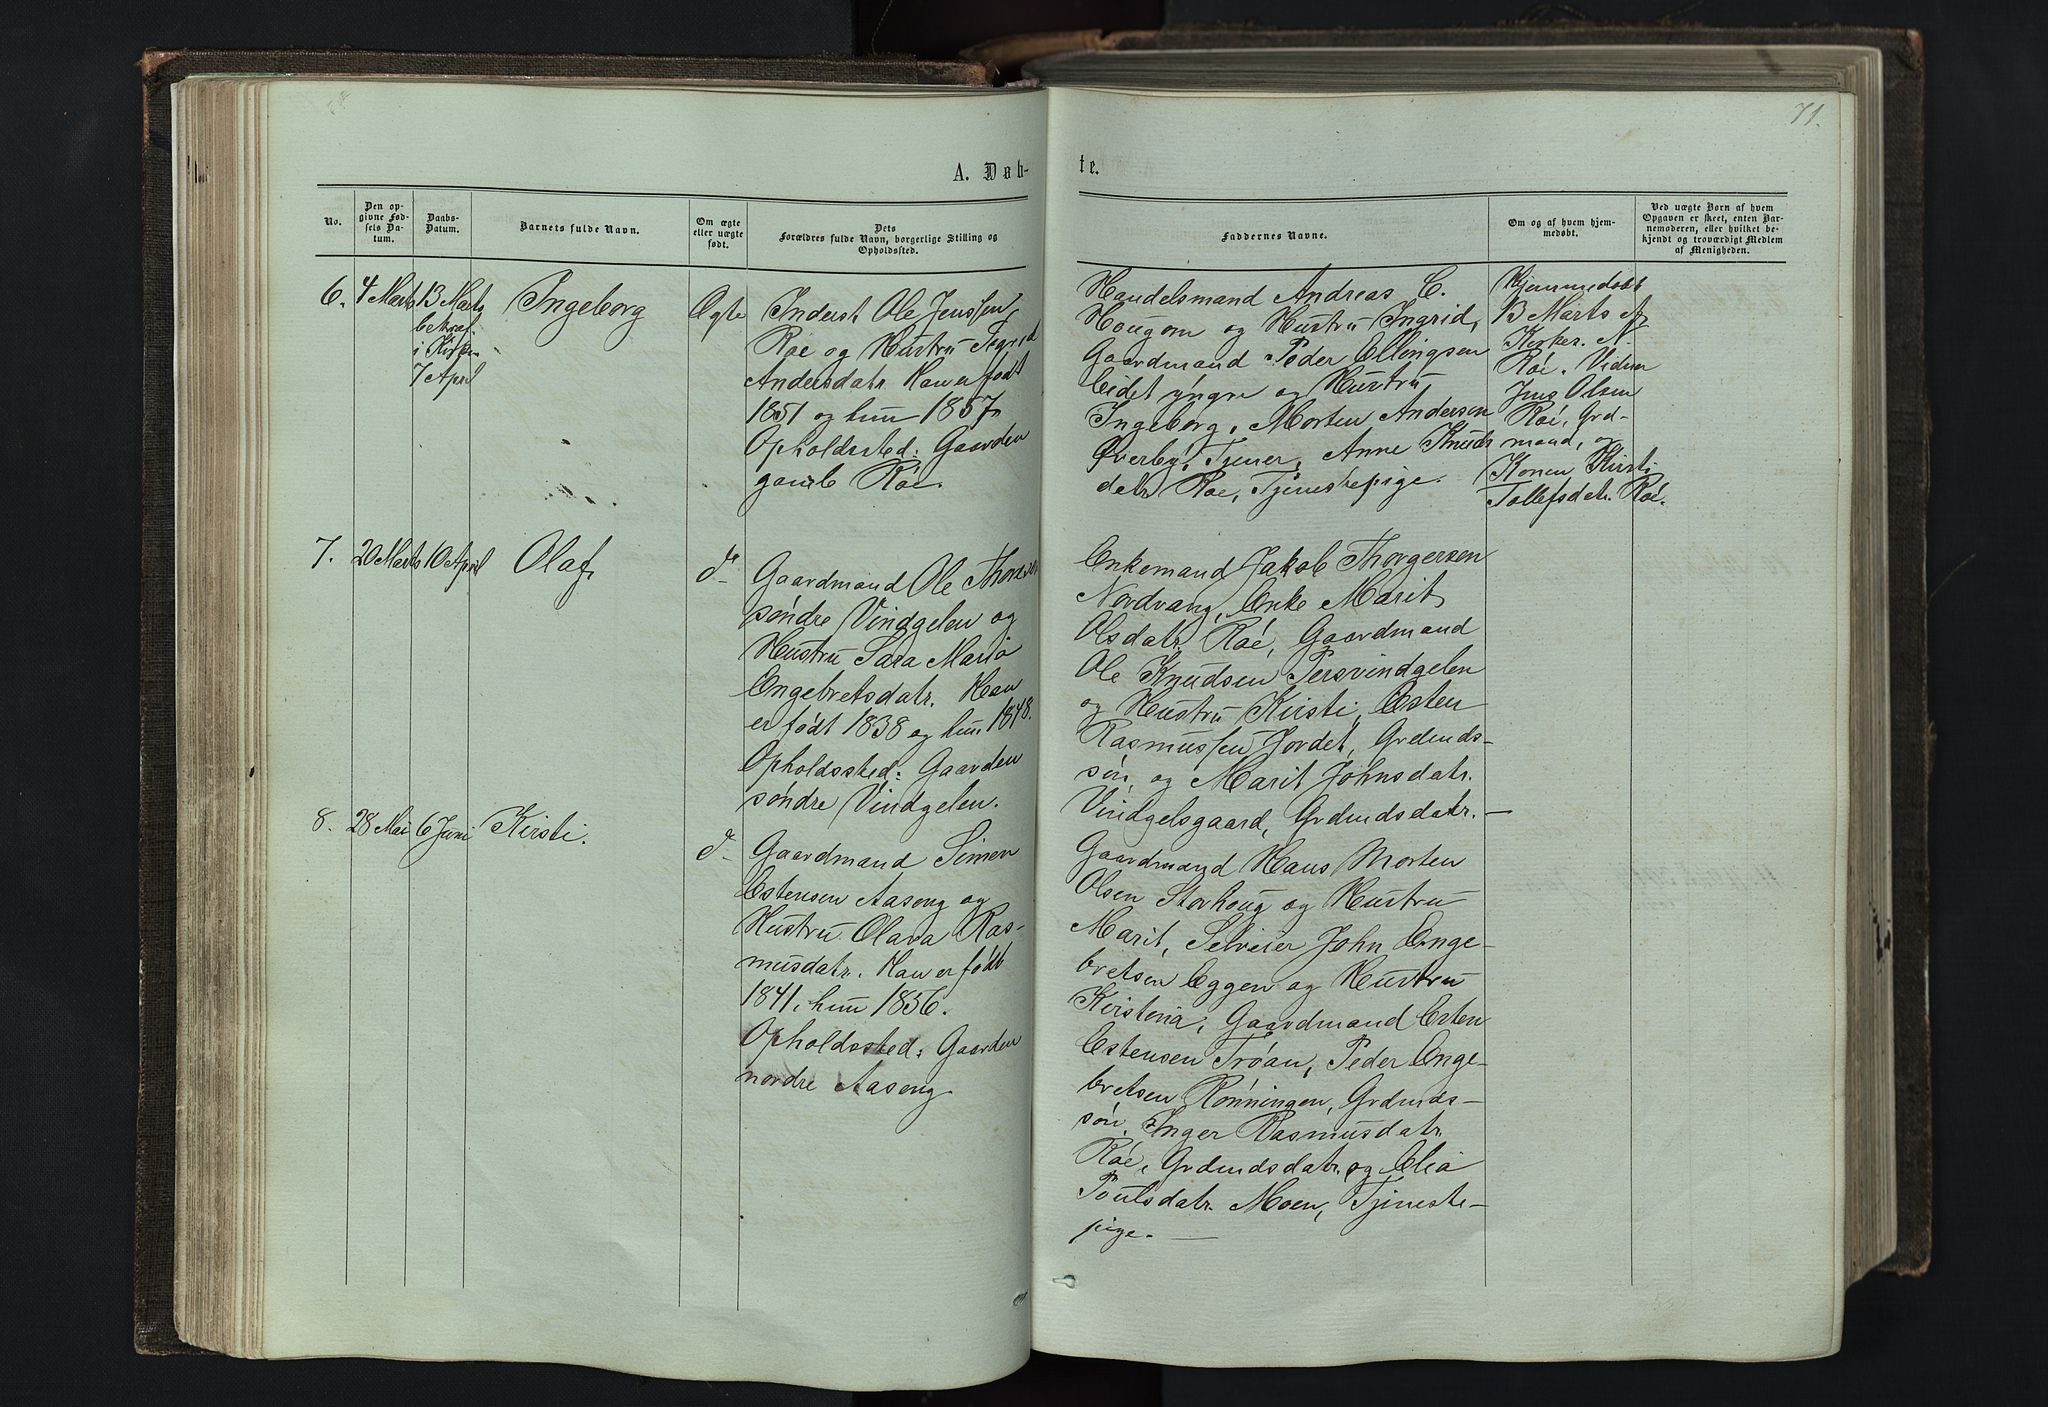 71.
A. Døb-
te.
No.
Den op-
givne Fød-
sels Da-
tum.
Daabs-
Datum.
Barnets fulde Navn.
Om ægte
eller uægte
født.
Dets
Forældres fulde Navn, borgerlige Stilling og
Opholdssted.
Faddernes Navne.
Om og af hvem hjem-
medøbt.
Ved uægte Børn af hvem
Opgaven er skeet, enten Bar-
nemoderen, eller hvilket be-
kjendt og troværdigt Medlem
af Menigheden.
6.
4 Marts
13 Marts
bekræf.
i Kirken
7 April
Ingeborg
Ægte
Inderst Ole Jenssen
Roe og Hustru
Andersdatr. Han er født
1851 og hun 1857.
Opholdssted: Gaarden
gamle Röe.
Handelsmand Andreas E.
Hougom og Hustru Ingrid,
Gaardmand Peder Ellingsen
Eidet yngre og Hustru
Ingeborg, Morten Andersen
Øverby, Tjener, Anne Knuds
datr. Röe, Tjenestepige.
Hjemmedøbt
13 Marts af
Kirkes. N.
Röe. Vidner
Jens Olsen
Röe, Grd-
mand, og
Konen Kirsti
Tollefsdatr. Röe.
7.
20 Marts
10 April
Olaf.
do
Gaardmand Ole
söndre Vindgelen og
Hustru Sara Maria
Engebretsdatr. Han
er født 1838 og hun 1848.
Opholdssted: Gaarden
söndre Vindgelen.
Enkemand Jakob Thorgersen
Nordvang, Enke Marit
Olsdatr. Röe, Gaardmand
Ole Knudsen Persvindgelen
og Hustru Kirsti, Esten
Rasmussen Jordet, Grdmds-
søn, og Marit Johnsdatr.
Vindgelsgaard, Grdmdsdatr. —
8.
28 Mai
6 Juni
Kirsti.
do
Gaardmand Simen
Estensen Aaseng og
Hustru Olava Ras-
musdatr. Han er født
1841, hun 1856.
Opholdssted: Gaarden
nordre Aaseng.
Gaardmand Hans Morten
Olsen Storhoug og Hustru
Marit, Selveier John Enge-
bretsen Eggen og Hustru
Kirstina, Gaardmand Esten
Estensen Tröan, Peder Enge-
bretsen Rönningen, Grdmds-
søn, Inger Rasmusdatr.
Röe, Grdmdsdatr. og Elia
Poulsdatr. Moen, Tjeneste-
pige. —